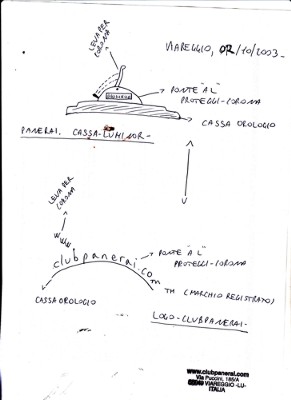 VIAREGGIO, 02/10/2003-
LEVA PER
CORONA
PONTE "A L"
PROTEGGI-CORONA
CASSA OROLOGIO
PANERAI. CASSA-LUMINOR-
LEVA PER
CORONA
www
clubpanerai.com
PONTE "A L"
PROTEGGI-CORONA
CASSA OROLOGIO
TM (MARCHIO REGISTRATO)
LOGO-CLUBPANERAI-
www.clubpanerai.com
Via Puccini, 185/A
VIAREGGIO -LU-
ITALIA